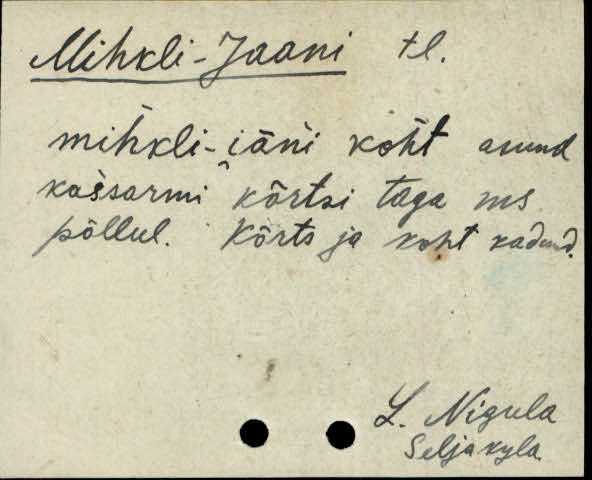 Mihkli-Jaani tl.
mihkli-iäńi koht asund
kaśsarmi kõrtsi taga ms
põllul. Kõrts ja koht kadund.
L. Nigula
Seljakyla